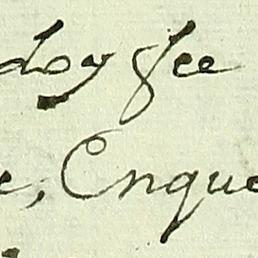 Loy fee
e, Enque